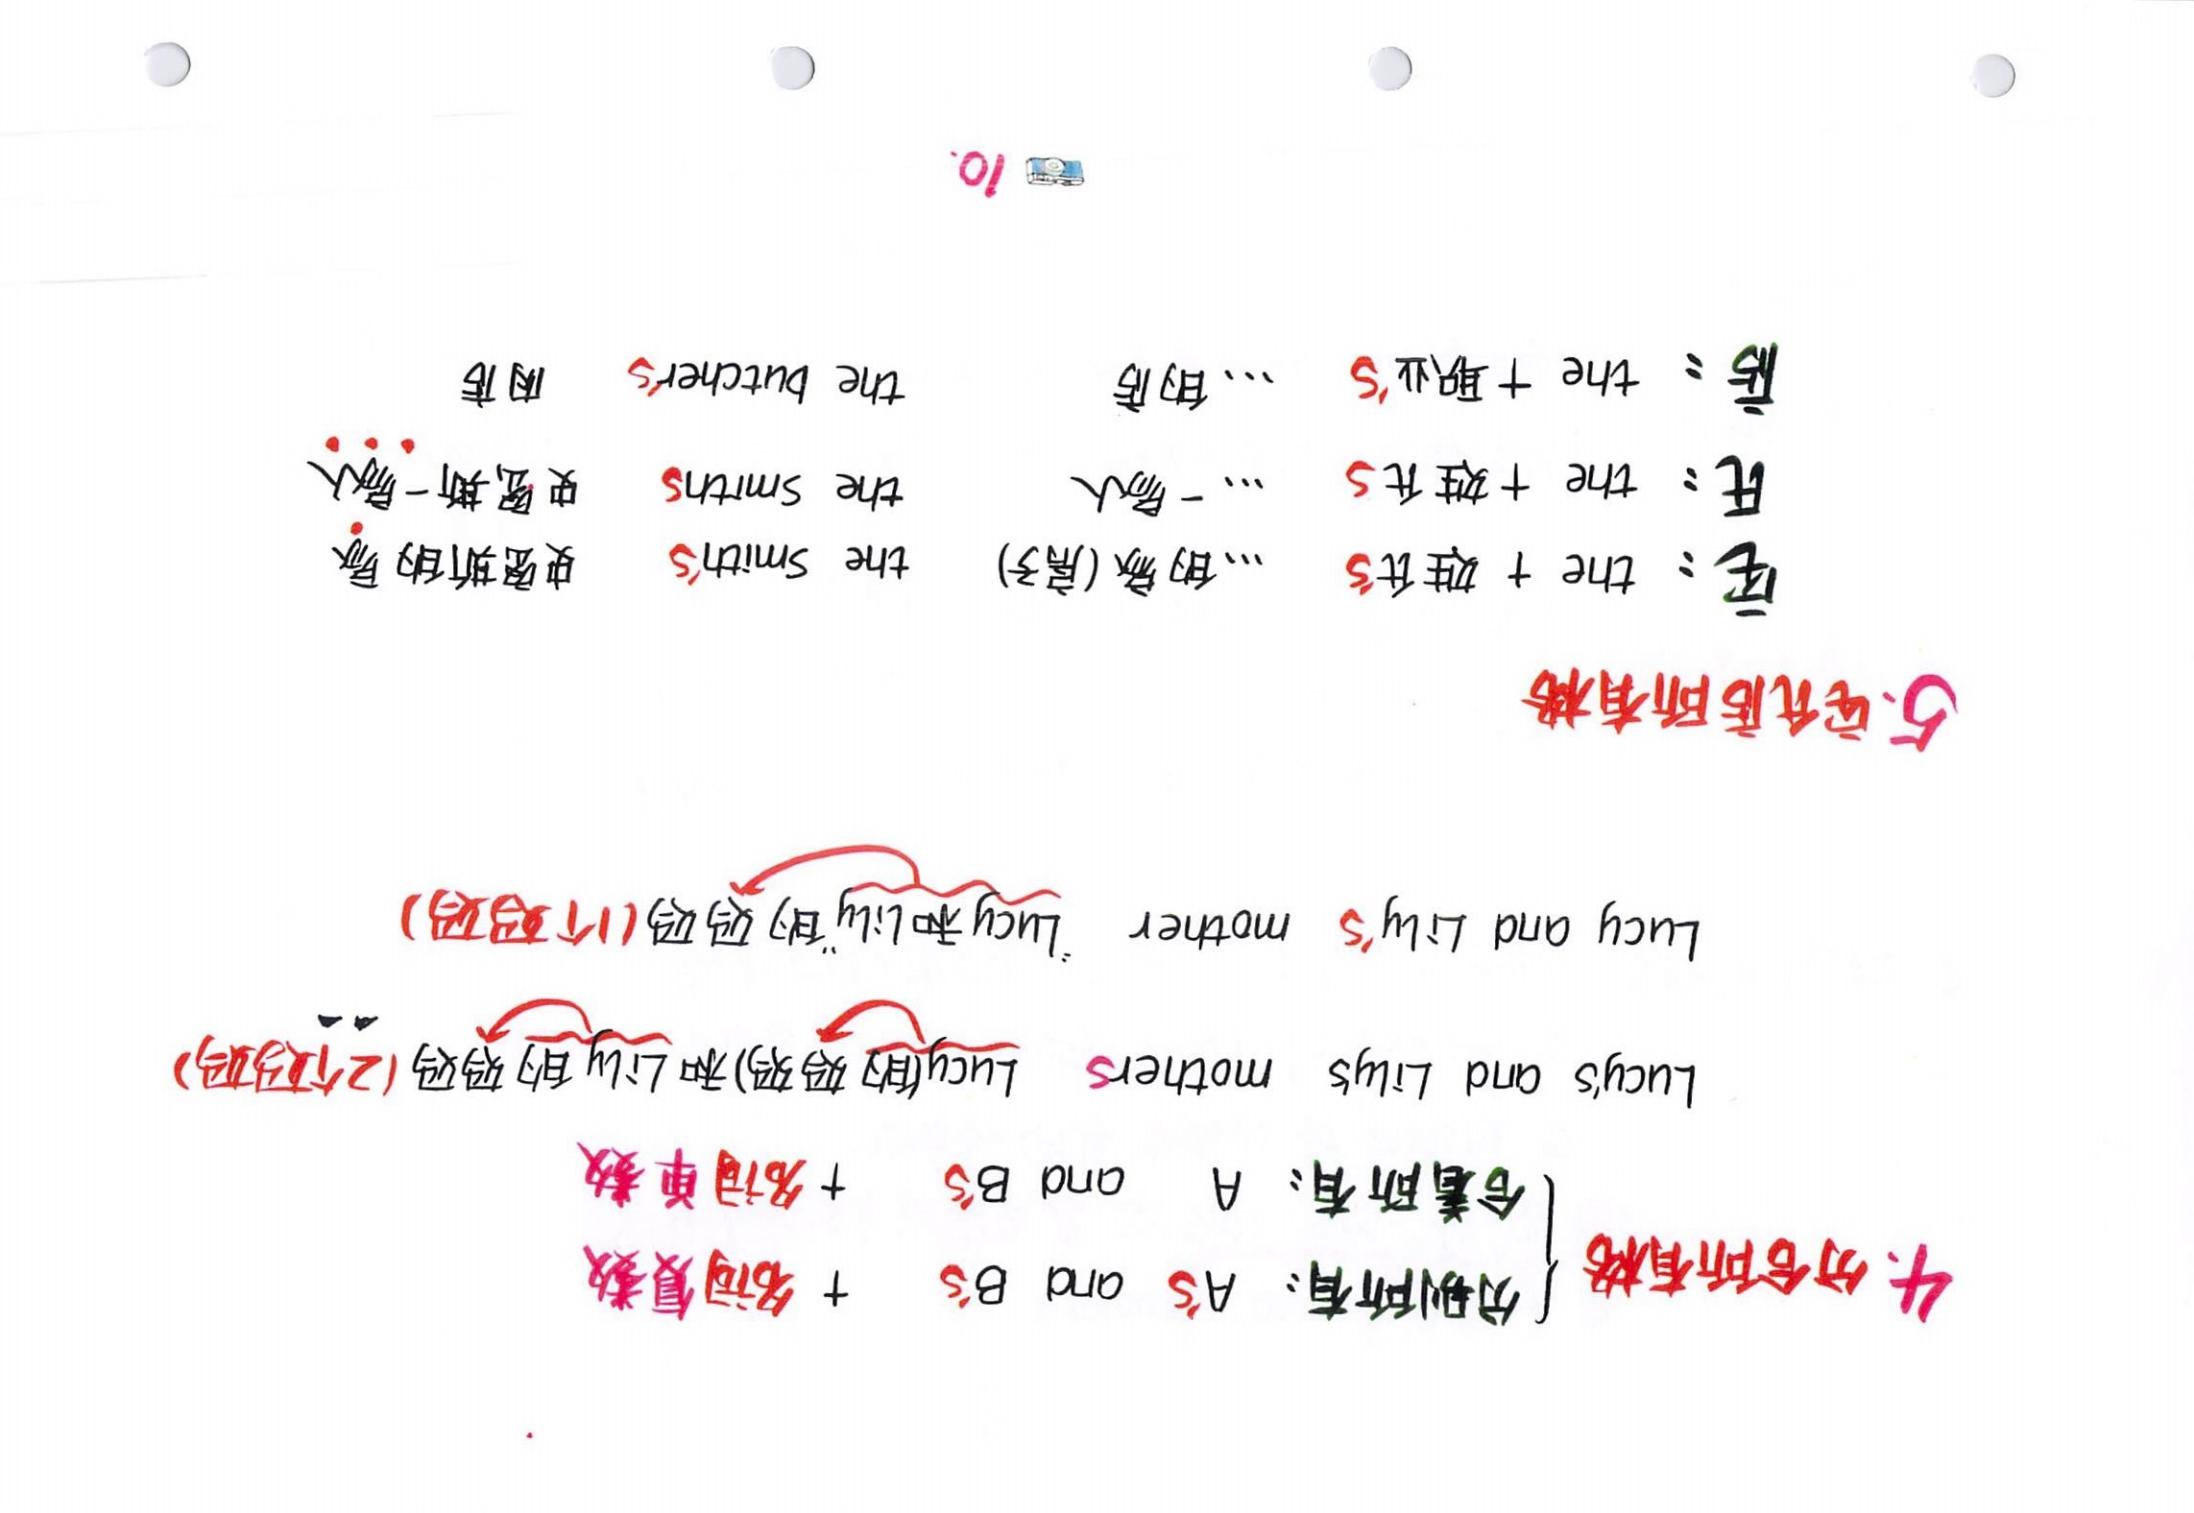 4. 分合所有格
分别所有: A's and B's + 名词复数
合着所有: A and B's + 名词单数
Lucy's and Lily's mothers Lucy(的妈妈)和Lily的妈妈 (2个妈妈)
Lucy and Lily's mother "Lucy和Lily"的妈妈 (1个妈妈)
5. 宅氏店所有格
宅: the + 姓氏's …的家(房子) the Smith's 史密斯的家
氏: the + 姓氏s …一家人 the Smiths 史密斯一家人
店: the + 职业's …的店 the butcher's 肉店
10.